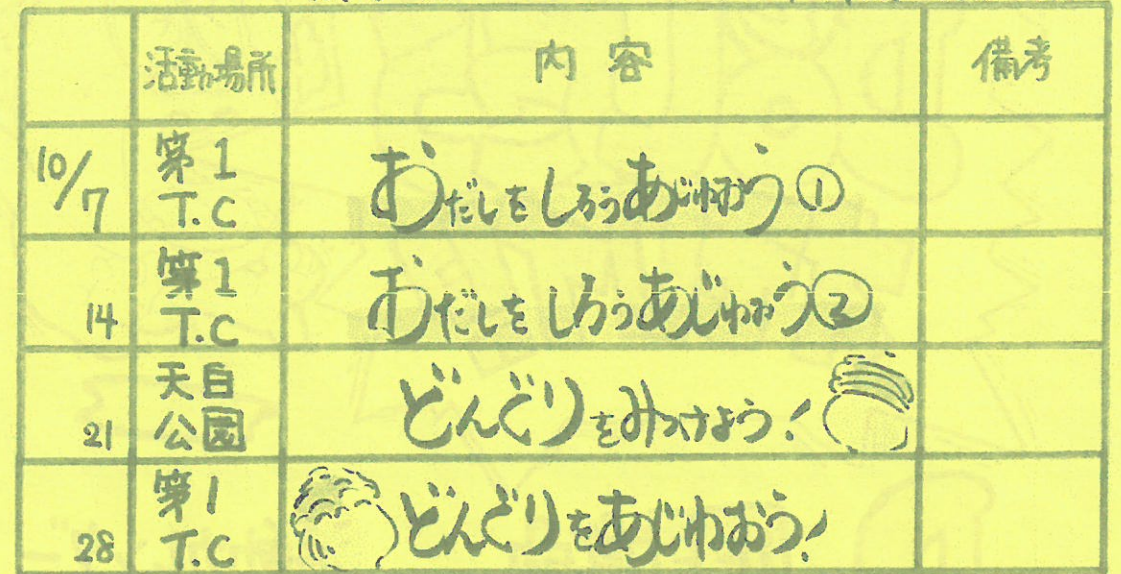 活動場所 内容 備考
10/7 第1 T.C おだしをしろうあじわおう①
14 第1 T.C おだしをしろうあじわおう②
21 天白公園 どんぐりをみつけよう!
28 第1 T.C どんぐりをあじわおう!